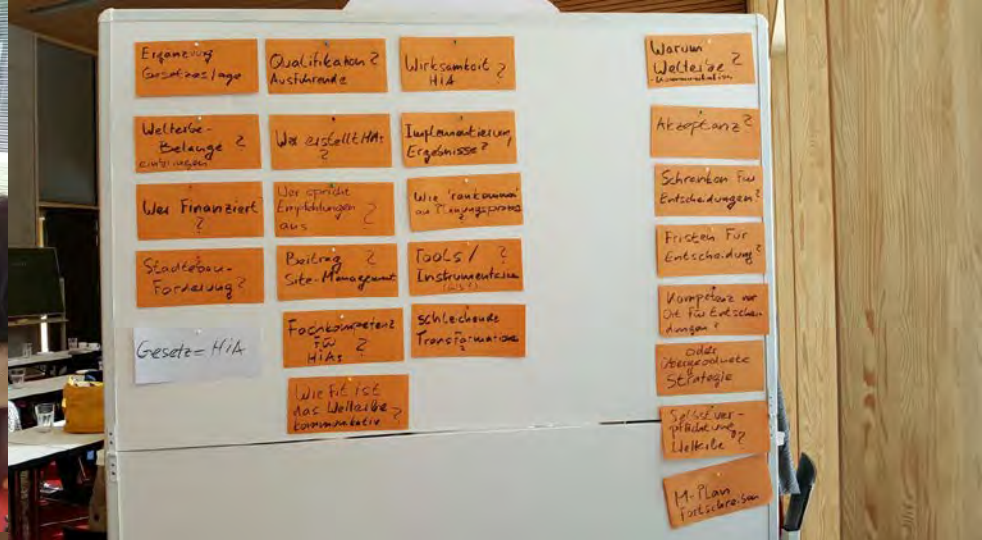 Ergänzung
Gesetzeslage
Welterbe-
Belange ?
einbringen
Wer Finanziert
?
Städtebau-
Förderung?
Gesetz = HiA
Qualifikation ?
Ausführende
Wer erstellt HiAs
?
Wer spricht
Empfehlungen ?
aus
Beitrag ?
Site-Management
Fachkompetenz
für
HiAs ?
Wie fit ist
das Welterbe ?
kommunikativ
Wirksamkeit
HiA ?
Implementierung
Ergebnisse?
Wie
an Planungsprozess
Tools / ?
Instrumentarien
schleichende
Transformation
?
Warum
Welterbe ?
-kommunikation
Akzeptanz?
Schranken für
Entscheidungen?
Fristen Für
Entscheidung?
Kompetenz vor
Ort für Entschei-
dungen?
oder
übergeordnete
Strategie
Selbstver-
pflichtung ?
Welterbe
M-Plan
fortschreiben